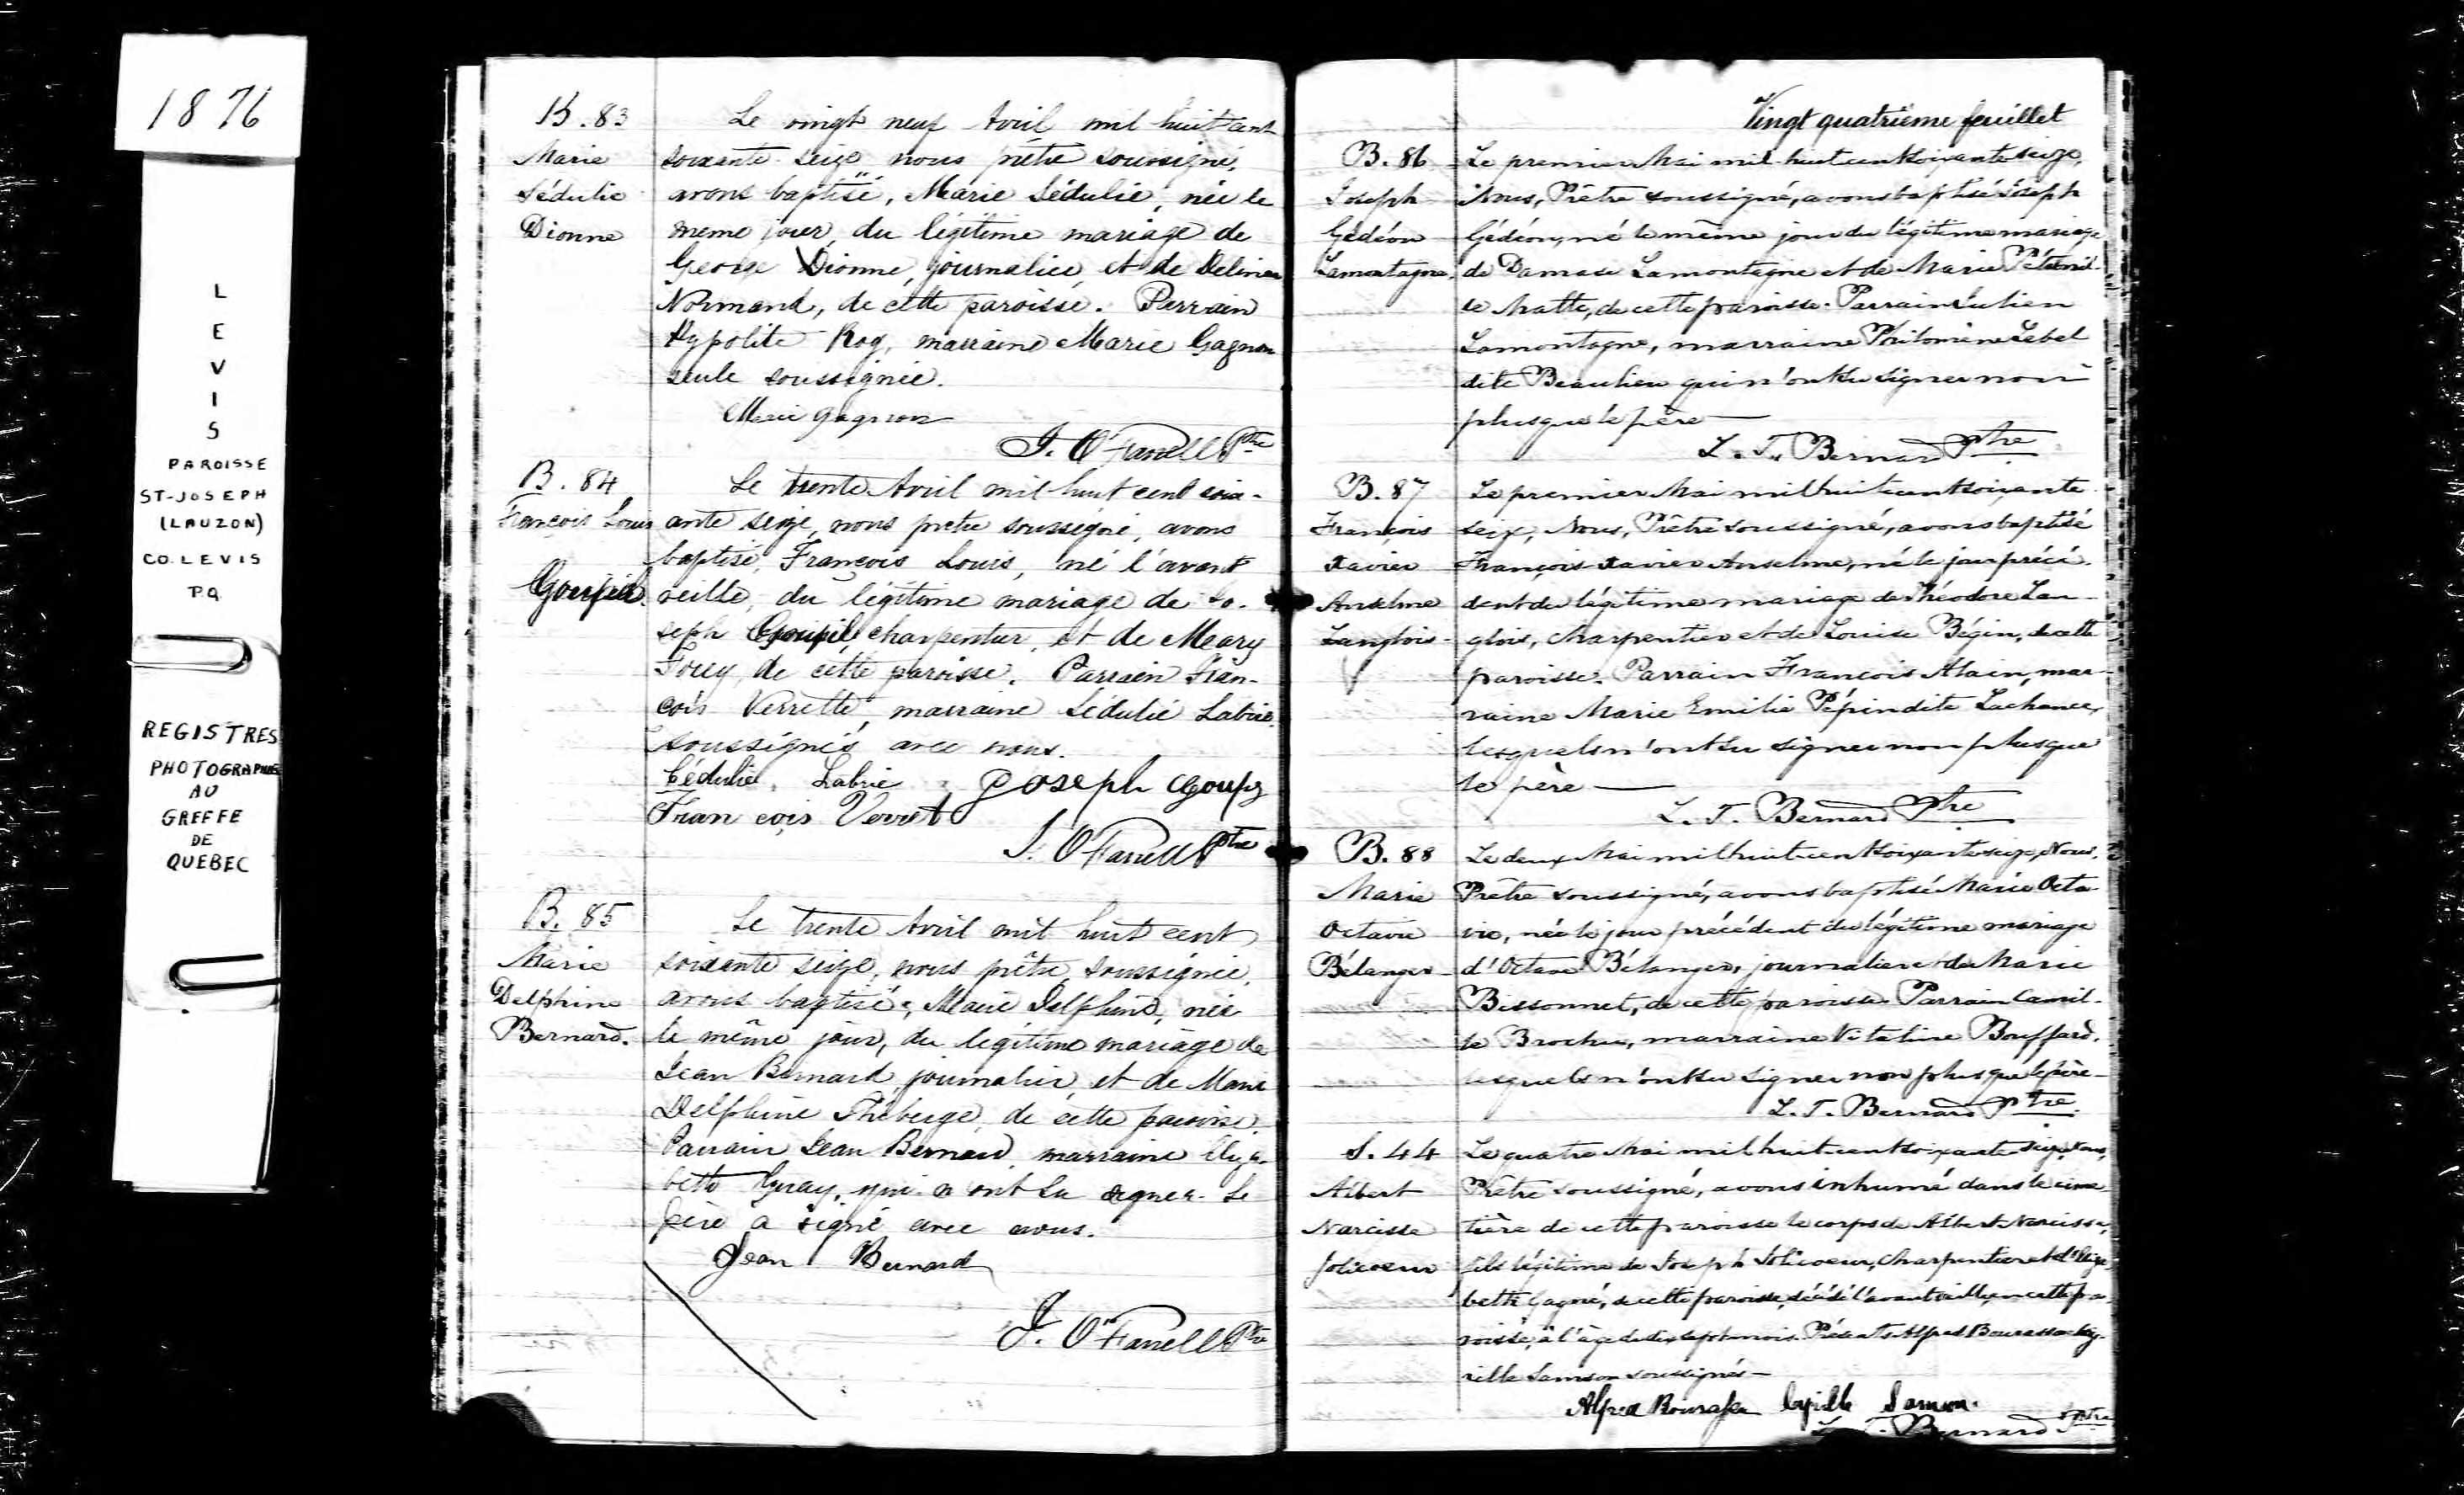 1876
LEVIS
PAROISSE
ST-JOSEPH
(LAUZON)
CO. LEVIS
P.Q
REGISTRES
PHOTOGRAPHIES
AU
GREFFE
DE
QUEBEC
B. 83
Marie
Sédulie
Dionne
Le vingt neuf Avril mil huit cent
soixante seize nous prêtre soussigné,
avons baptisé, Marie Sédulie, née le
même jour, du légitime mariage de
George Dionne, journalier, et de Delima
Normand, de cette paroisse. Parrain
Hypolite Roy, marraine Marie Gagnon
seule soussignée.
Marie Gagnon
J. O'Farrell Ptre
B. 84
François Louis
Goupil.
Le trente Avril mil huit cent soix-
ante seize, nous prêtre soussigné, avons
baptisé, François Louis, né l'avant
veille, du légitime mariage de Jo-
seph Goupil, charpentier, et de Meary
de cette paroisse. Parrain Fran-
çois Verrette, marraine Sédulie Labrie
soussignés avec nous.
Cédulie Labrie Joseph Goupil
François Verret
J. O'Farrell Ptre
B. 85
Marie
Delphine
Bernard.
Le trente Avril mil huit cent
soixante seize, nous prêtre soussigné,
avons baptisé, Marie Delphine, née
le même jour, du légitime mariage de
Jean Bernard, journalier, et de Marie
Delphine Théberge, de cette paroisse.
Parrain Jean Bernard, marraine Eliza-
beth Guay, qui n'ont su signer. Le
père a signé avec nous.
Jean Bernard
J. O'Farrell Ptre
Vingt quatrième feuillet
B. 86
Joseph
Gédéon
Lamontagne,
Le premier Mai mil-huit cent soixante seize,
Nous, Prêtre soussigné, avons baptisé Joseph
Gédéon, né le même jour du légitime mariage
de Damase Lamontagne et de Marie Pétronil-
le Matte, de cette paroisse. Parrain Julien
Lamontagne, marraine Philomène Lebel
dite Beaulieu qui n'ont su signer non
plus que le père —
L. T. Bernard Ptre
B. 87
François
Xavier
Anselme
Langlois
Le premier Mai mil huit cent soixante
seize, Nous, Prêtre soussigné, avons baptisé
François-Xavier Anselme, né le jour précé-
dent du légitime mariage de Théodore Lan-
glois, charpentier et de Louise Bégin, de cette
paroisse. Parrain François Alain, mar-
raine Marie Emilie Pépin dite Lachance,
lesquels n'ont su signer non plus que
le père —
L. T. Bernard Ptre
B. 88
Marie
Octavie
Bélanger
Le deux Mai mil huit cent soixante seize, Nous,
Prêtre soussigné, avons baptisé Marie Octa-
vie, née le jour précédent du légitime mariage
d'Octave Bélanger, journalier et de Marie
Bissonnet, de cette paroisse. Parrain Camil-
le Brochu, marraine Vitaline Bouffard,
lesquels n'ont su signer non plus que le père —
L. T. Bernard Ptre
S. 44
Albert
Narcisse
Jolicoeur
Le quatre Mai mil huit cent soixante seize, Nous,
Prêtre soussigné, avons inhumé dans le cime-
tière de cette paroisse le corps de Albert Narcisse,
fils légitime de Joseph Jolicoeur, charpentier et d'Eliza-
beth Gagné, de cette paroisse, décédé l'avant veille, en cette pa-
roisse, à l'âge de dix sept mois. Présents Alfred Bourassa et Cy-
rille Samson soussignés —
Alfred Bourassa Cyrille Samson.
L. T. Bernard Ptre